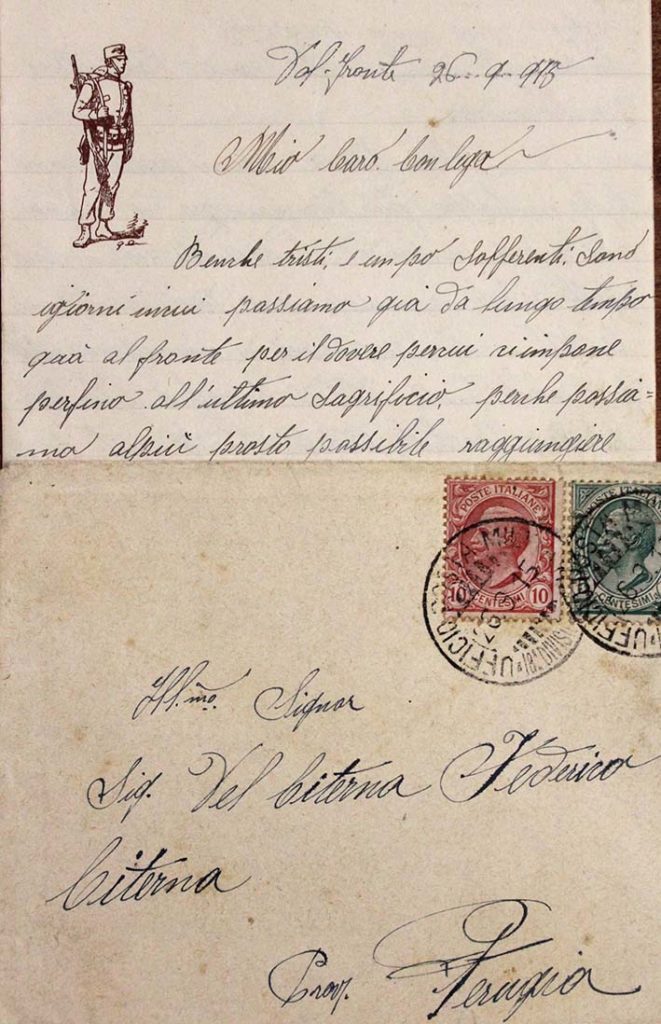 Dal fronte 26-9-915
Mio Caro Conlega
Benche tristi, e unpó Sofferenti. Sono
igiorni incui passiamo giá da lungo tempo
quá al fronte per il dovere percui ci impone
perfino all'ultimo Sagrificio, perche possia=
mo alpiú prosto possibile raggiungiere
POSTE ITALIANE
10 CENTESIMI 10
POSTE ITALIANE
CENTESIMI
UFFICIO POSTA MIL
DIVIS
Ill.mo Signor
Sig. Del Citerna Federico
Citerna
Prov. Perugia